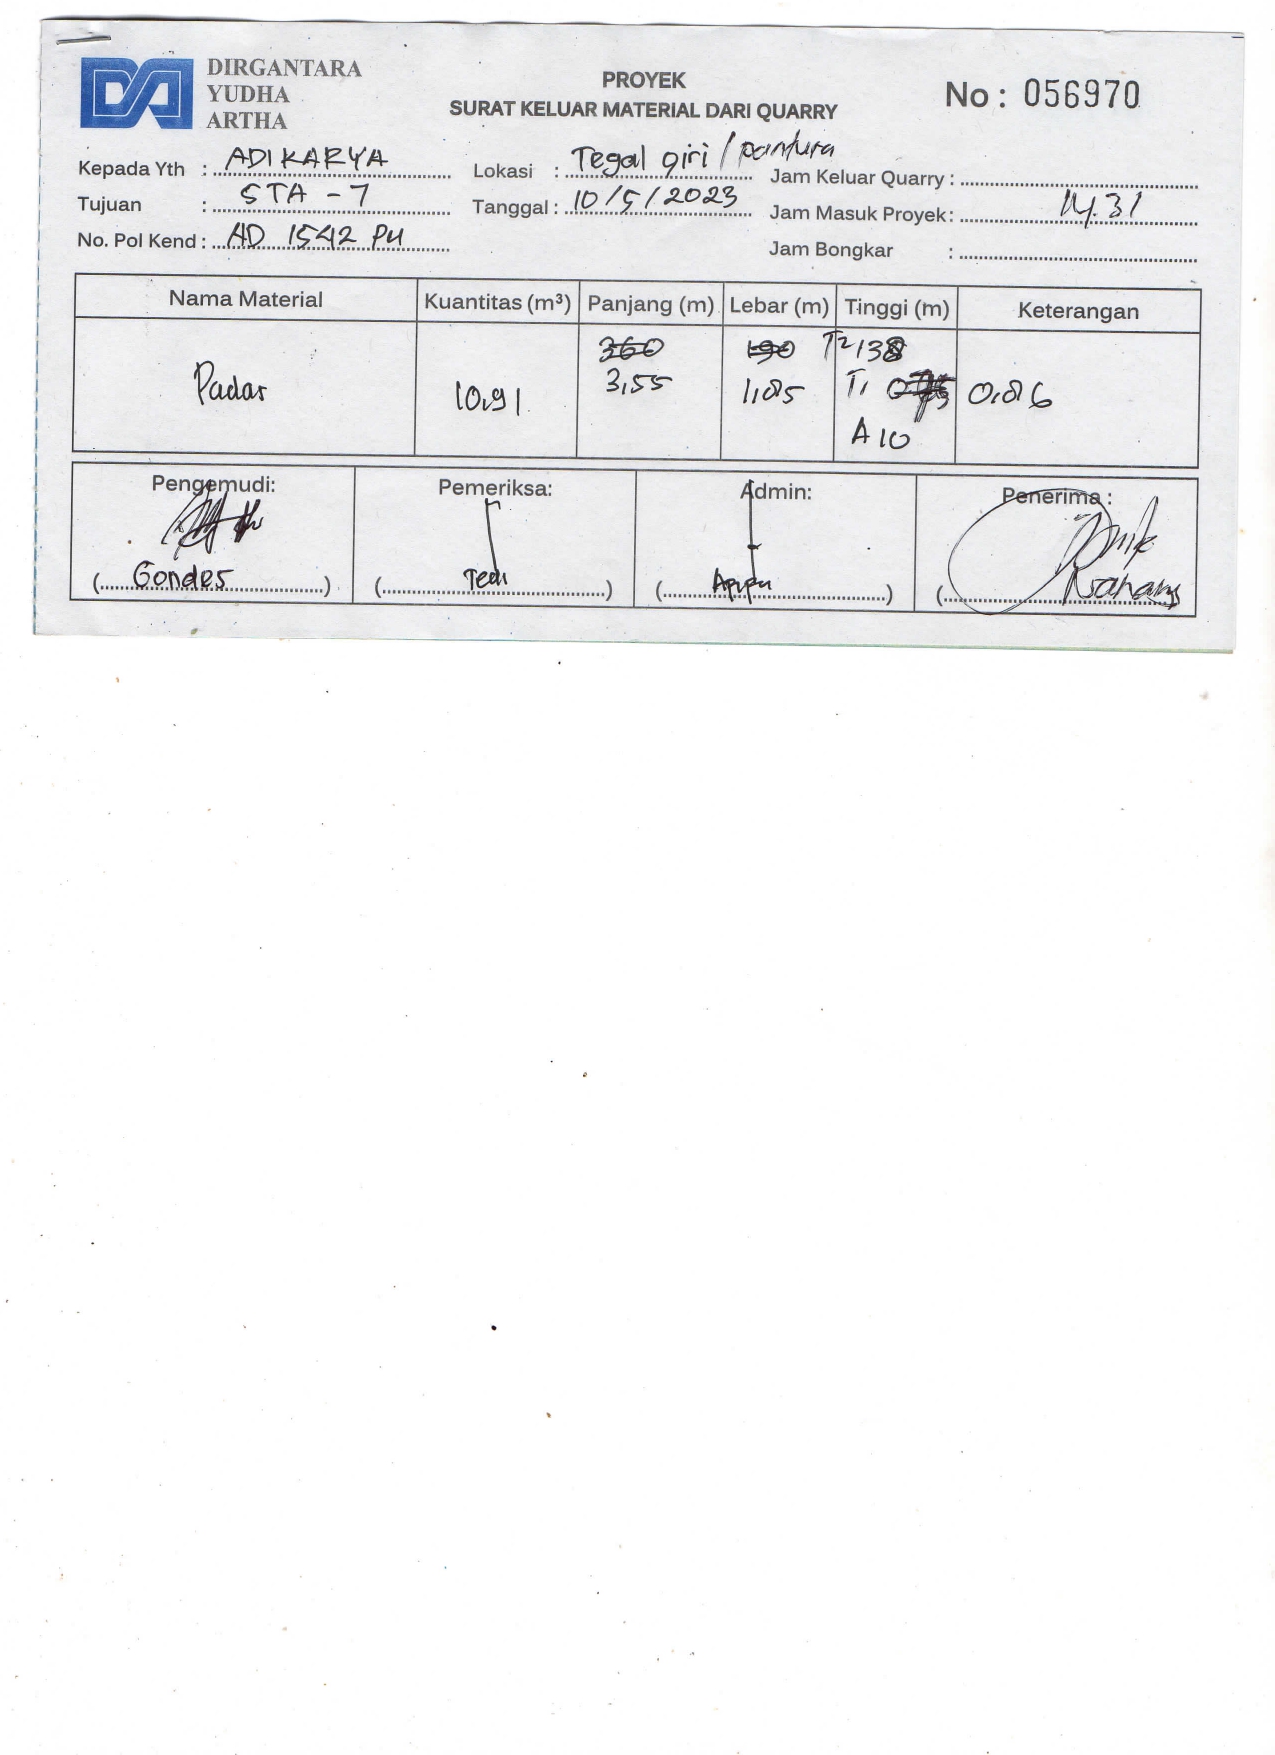 DIRGANTARA
YUDHA
ARTHA
PROYEK
SURAT KELUAR MATERIAL DARI QUARRY
No : 056970
Kepada Yth : ADIKARYA
Tujuan : STA - 7
No. Pol Kend : AD 1542 PU
Lokasi : Tegal giri / pantura
Tanggal : 10/5/2023
Jam Keluar Quarry :
Jam Masuk Proyek : 14.31
Jam Bongkar :
Nama Material Kuantitas (m³) Panjang (m) Lebar (m) Tinggi (m) Keterangan
360 190 T2 138
Padas 10,91 3,55 1,85 T1 0,86
A 10
Pengemudi: Pemeriksa: Admin: Penerima :
(Gondes) (Tedi) ( ) ( )